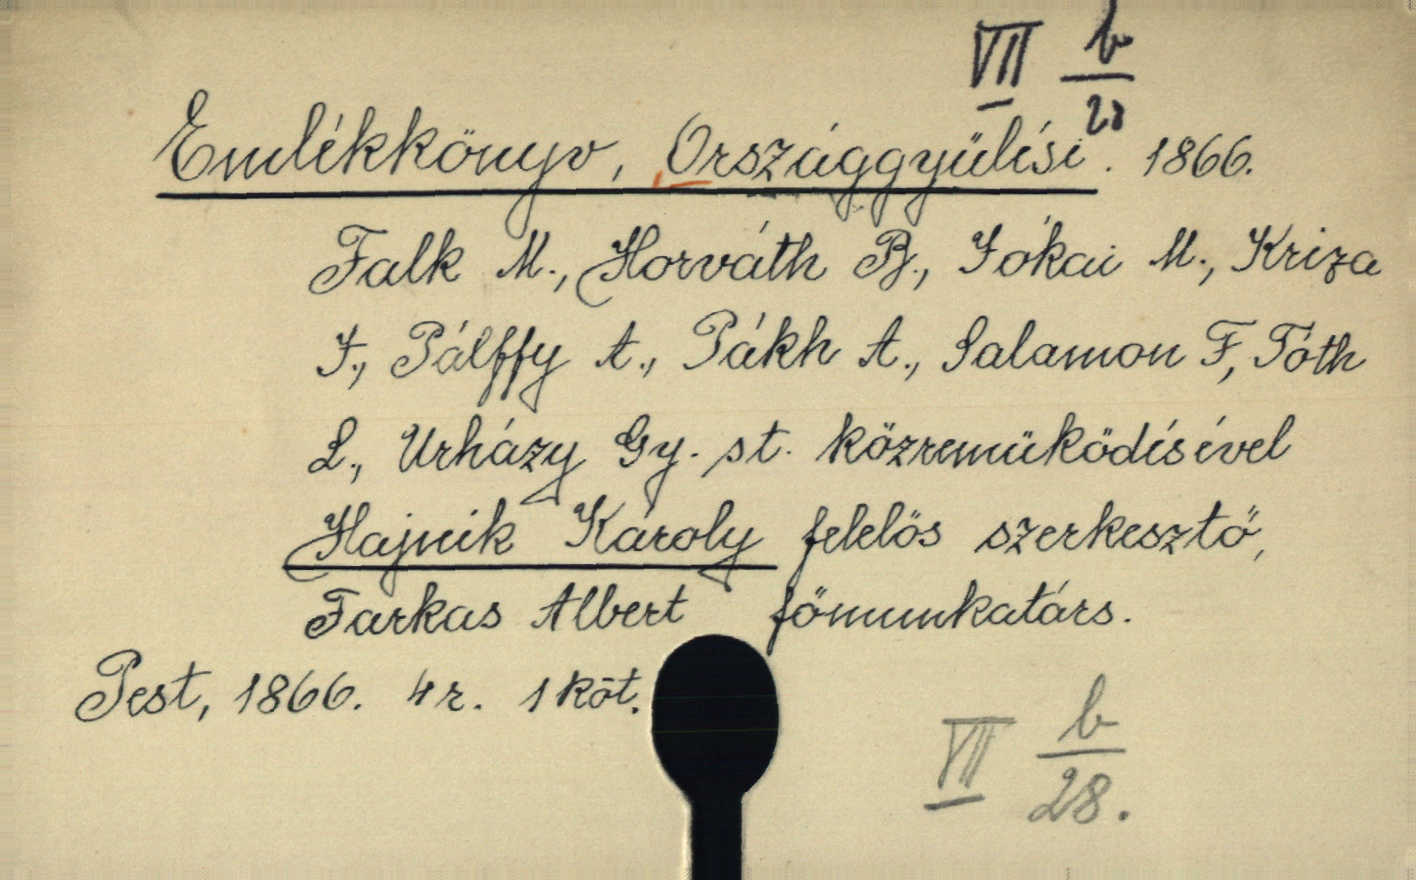 VII b/28
Emlékkönyv, Országgyülési. 1866.
Falk M., Horváth B., Jókai M., Kriza
J., Pálffy A., Pákh A., Salamon F., Tóth
L., Urházy Gy. st. közremüködésével
Hajnik Károly felelős szerkesztő,
Farkas Albert főmunkatárs.
Pest, 1866. 4r. 1 köt.
VII b/28.